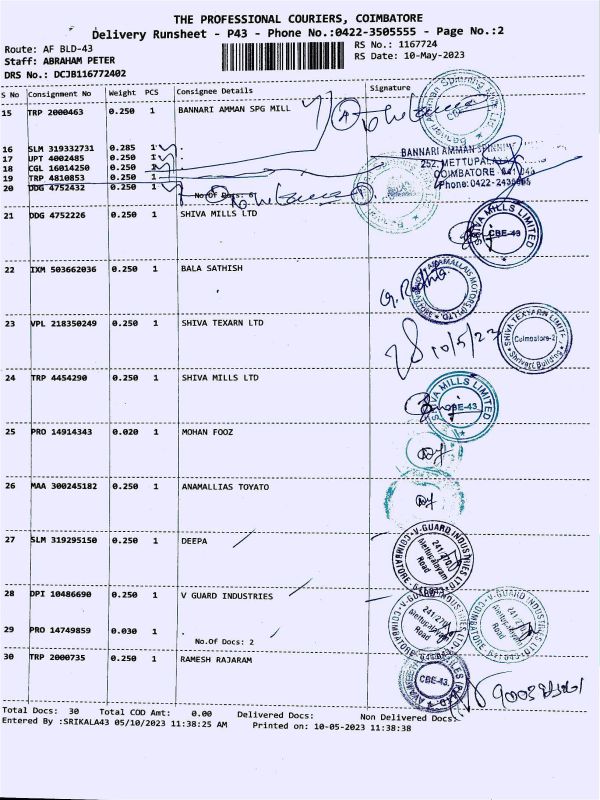 THE PROFESSIONAL COURIERS, COIMBATORE
Delivery Runsheet - P43 - Phone No.:0422-3505555 - Page No.:2
Route: AF BLD-43
Staff: ABRAHAM PETER
DRS No.: DCJB116772402
RS No.: 1167724
RS Date: 10-May-2023
S No Consignment No Weight PCS Consignee Details Signature
15 TRP 2000463 0.250 1 BANNARI AMMAN SPG MILL
16 SLM 319332731 0.285 1
17 UPT 4002485 0.250 1
18 CGL 16014250 0.250 1
19 TRP 4810853 0.250 1
20 DDG 4752432 0.250 1
No.Of Docs: 6
BANNARI AMMAN SPINNING
252, METTUPALAYAM
COIMBATORE - 641 043
Phone: 0422-2435555
21 DDG 4752226 0.250 1 SHIVA MILLS LTD
SHIVA MILLS LIMITED
CBE-43
22 IXM 503662036 0.250 1 BALA SATHISH
23 VPL 218350249 0.250 1 SHIVA TEXARN LTD
10/5/23
SHIVA TEXYARN LIMITED
Coimbatore-2
Shivari Building
24 TRP 4454290 0.250 1 SHIVA MILLS LTD
SHIVA MILLS LIMITED
CBE-43
25 PRO 14914343 0.020 1 MOHAN FOOZ
26 MAA 300245182 0.250 1 ANAMALLIAS TOYATO
27 SLM 319295150 0.250 1 DEEPA
V-GUARD INDUSTRIES LTD
Mettupalayam
Road
COIMBATORE
28 DPI 10486690 0.250 1 V GUARD INDUSTRIES
V-GUARD INDUSTRIES
Mettupalayam
Road
COIMBATORE
29 PRO 14749859 0.030 1
No.Of Docs: 2
30 TRP 2000735 0.250 1 RAMESH RAJARAM
CBE-43
Total Docs: 30 Total COD Amt: 0.00 Delivered Docs: Non Delivered Docs:
Entered By :SRIKALA43 05/10/2023 11:38:25 AM Printed on: 10-05-2023 11:38:38